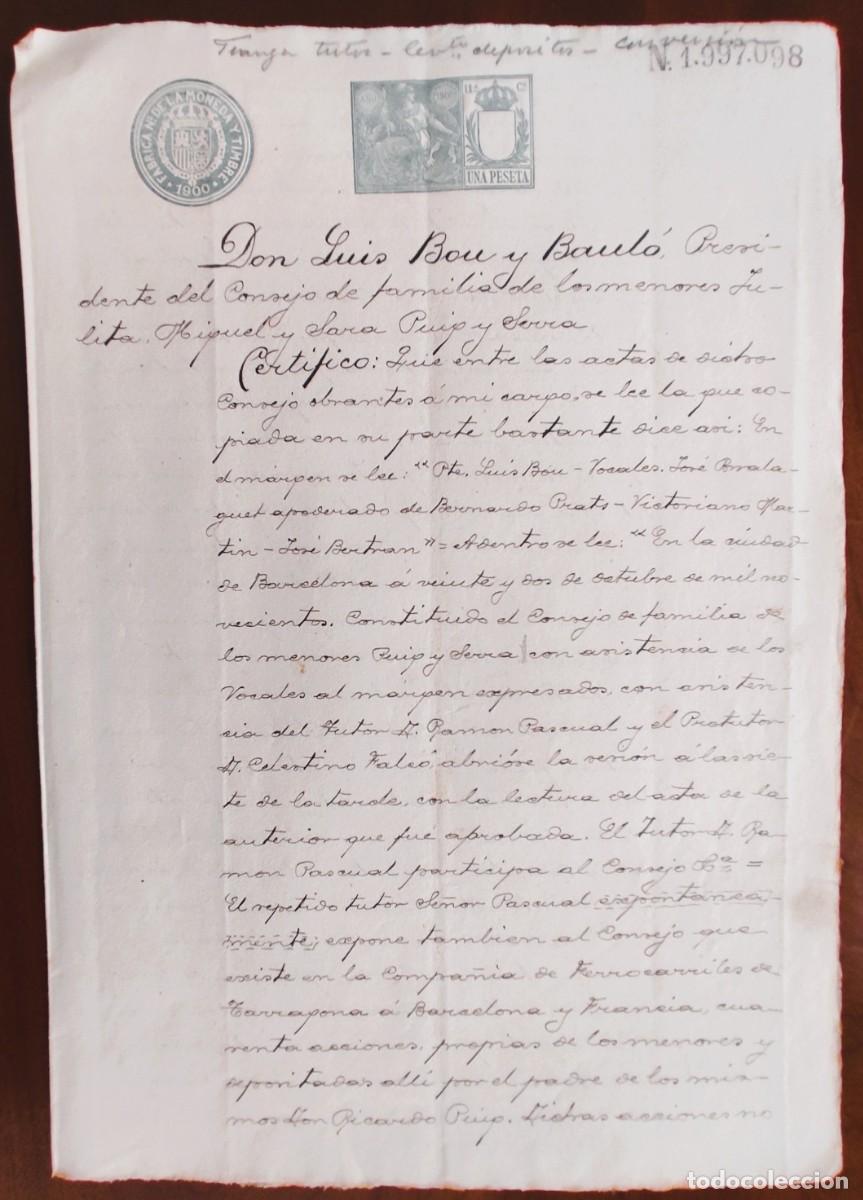 Fianza tutor - levto depositos - conversión
N. 1.997.098
FABRICA NAL DE LA MONEDA Y TIMBRE
· 1900 ·
11.ª Cª
UNA PESETA
Don Luis Bou y Bauló, Presi-
dente del Consejo de familia de los menores Ju-
lita, Miguel y Sara Puig y Serra
Certifico: Que entre las actas de dichro
Consejo obrantes á mi cargo, se lee la que co-
piada en su parte bastante dice asi: En
el márgen se lee: "Pte. Luis Bou - Vocales. José
guet apoderado de Bernardo Prats - Victoriano Mar-
tin - José Bertran" = Adentro se lee: "En la ciudad
de Barcelona á veinte y dos de octubre de mil no-
vecientos. Constituido el Consejo de familia de
los menores Puig y Serra con asistencia de los
Vocales al márgen expresados, con asisten-
cia del Tutor D. Ramon Pascual y el Protutor
D. Celestino Falcó, abrióse la sesión á las sie-
te de la tarde, con la lectura del acta de la
anterior que fué aprobada. El Tutor D. Ra-
mon Pascual participa al Consejo &ª =
El repetido tutor Señor Pascual expontanea-
mente, expone tambien al Consejo que
existe en la Compañia de Ferrocarriles de
Tarragona á Barcelona y Francia, cua-
renta acciones, propias de los menores y
depositadas allí por el padre de los mis-
mos Don Ricardo Puig. Dichas acciones no
todocoleccion